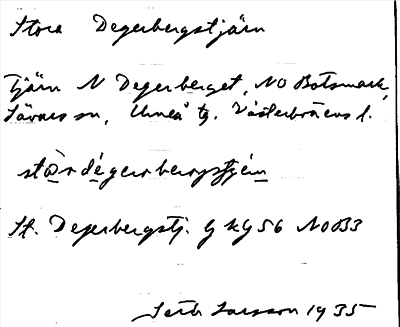 Stora Degerbergstjärn
Tjärn N Degerberget, NO Botsmark,
Sävars sn, Umeå tg. Västerbottens l.
St. Degerbergstj. G kg 56 NOB3
Seth Larsson 1935